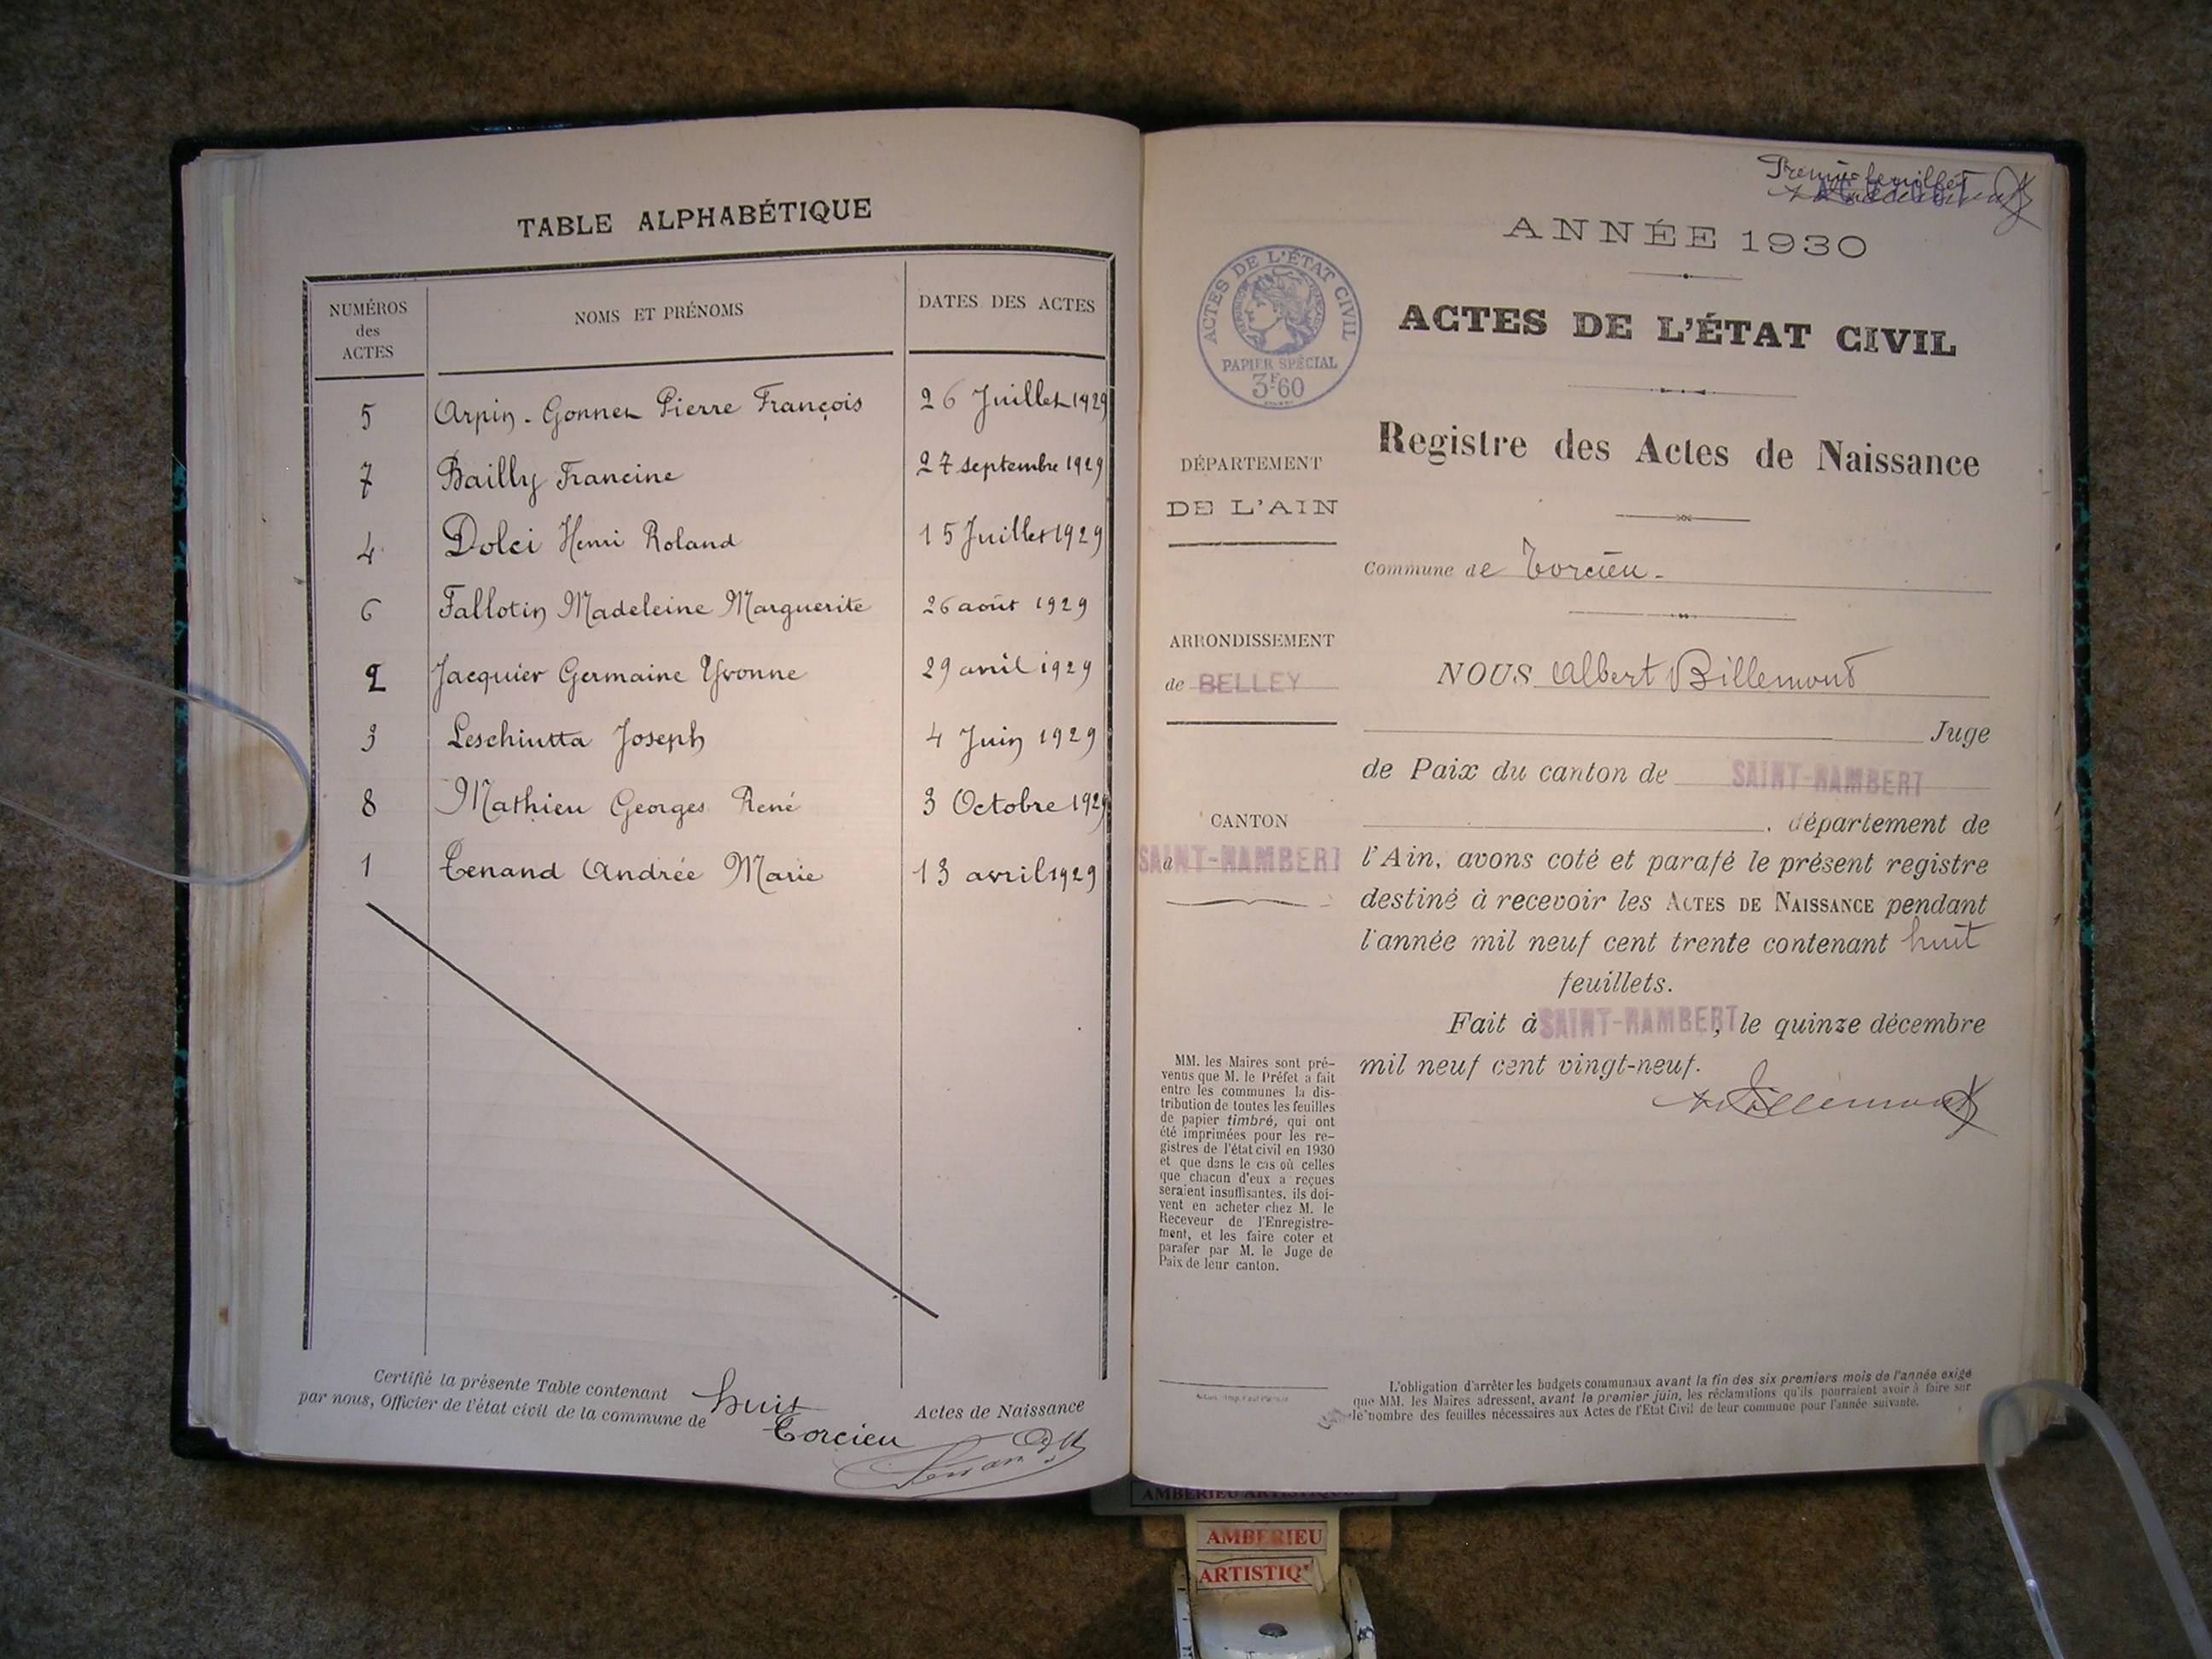 TABLE ALPHABÉTIQUE
NUMÉROS
des
ACTES
NOMS ET PRÉNOMS
DATES DES ACTES
5 Arpin-Gonnet Pierre François 26 Juillet 1929
7 Bailly Francine 27 septembre 1929
4 Dolci Henri Roland 15 Juillet 1929
6 Fallotin Madeleine Marguerite 26 août 1929
2 Jacquier Germaine Yvonne 29 avril 1929
3 Leschiutta Joseph 4 Juin 1929
8 Mathieu Georges René 3 Octobre 1929
1 Tenand Andrée Marie 13 avril 1929
Certifié la présente Table contenant huit Actes de Naissance
par nous, Officier de l'état civil de la commune de Torcieu
Premier feuillet
ANNÉE 1930
ACTES DE L'ÉTAT CIVIL
PAPIER SPÉCIAL
3F60
ACTES DE L'ÉTAT CIVIL
Registre des Actes de Naissance
DÉPARTEMENT
DE L'AIN
Commune de Torcieu.
ARRONDISSEMENT
de BELLEY
CANTON
d SAINT-RAMBERT
NOUS Albert Billemont
Juge
de Paix du canton de SAINT-RAMBERT
, département de
l'Ain, avons coté et parafé le présent registre
destiné à recevoir les ACTES DE NAISSANCE pendant
l'année mil neuf cent trente contenant huit
feuillets.
Fait à SAINT-RAMBERT, le quinze décembre
mil neuf cent vingt-neuf.
MM. les Maires sont pré-
venus que M. le Préfet a fait
entre les communes la dis-
tribution de toutes les feuilles
de papier timbré, qui ont
été imprimées pour les re-
gistres de l'état civil en 1930
et que dans le cas où celles
que chacun d'eux a reçues
seraient insuffisantes, ils doi-
vent en acheter chez M. le
Receveur de l'Enregistre-
ment, et les faire coter et
parafer par M. le Juge de
Paix de leur canton.
L'obligation d'arrêter les budgets communaux avant la fin des six premiers mois de l'année exige
que MM. les Maires adressent, avant le premier juin, les réclamations qu'ils pourraient avoir à faire sur
le nombre des feuilles nécessaires aux Actes de l'Etat Civil de leur commune pour l'année suivante.
AMBERIEU ARTISTIQUE
AMBERIEU
ARTISTIQ